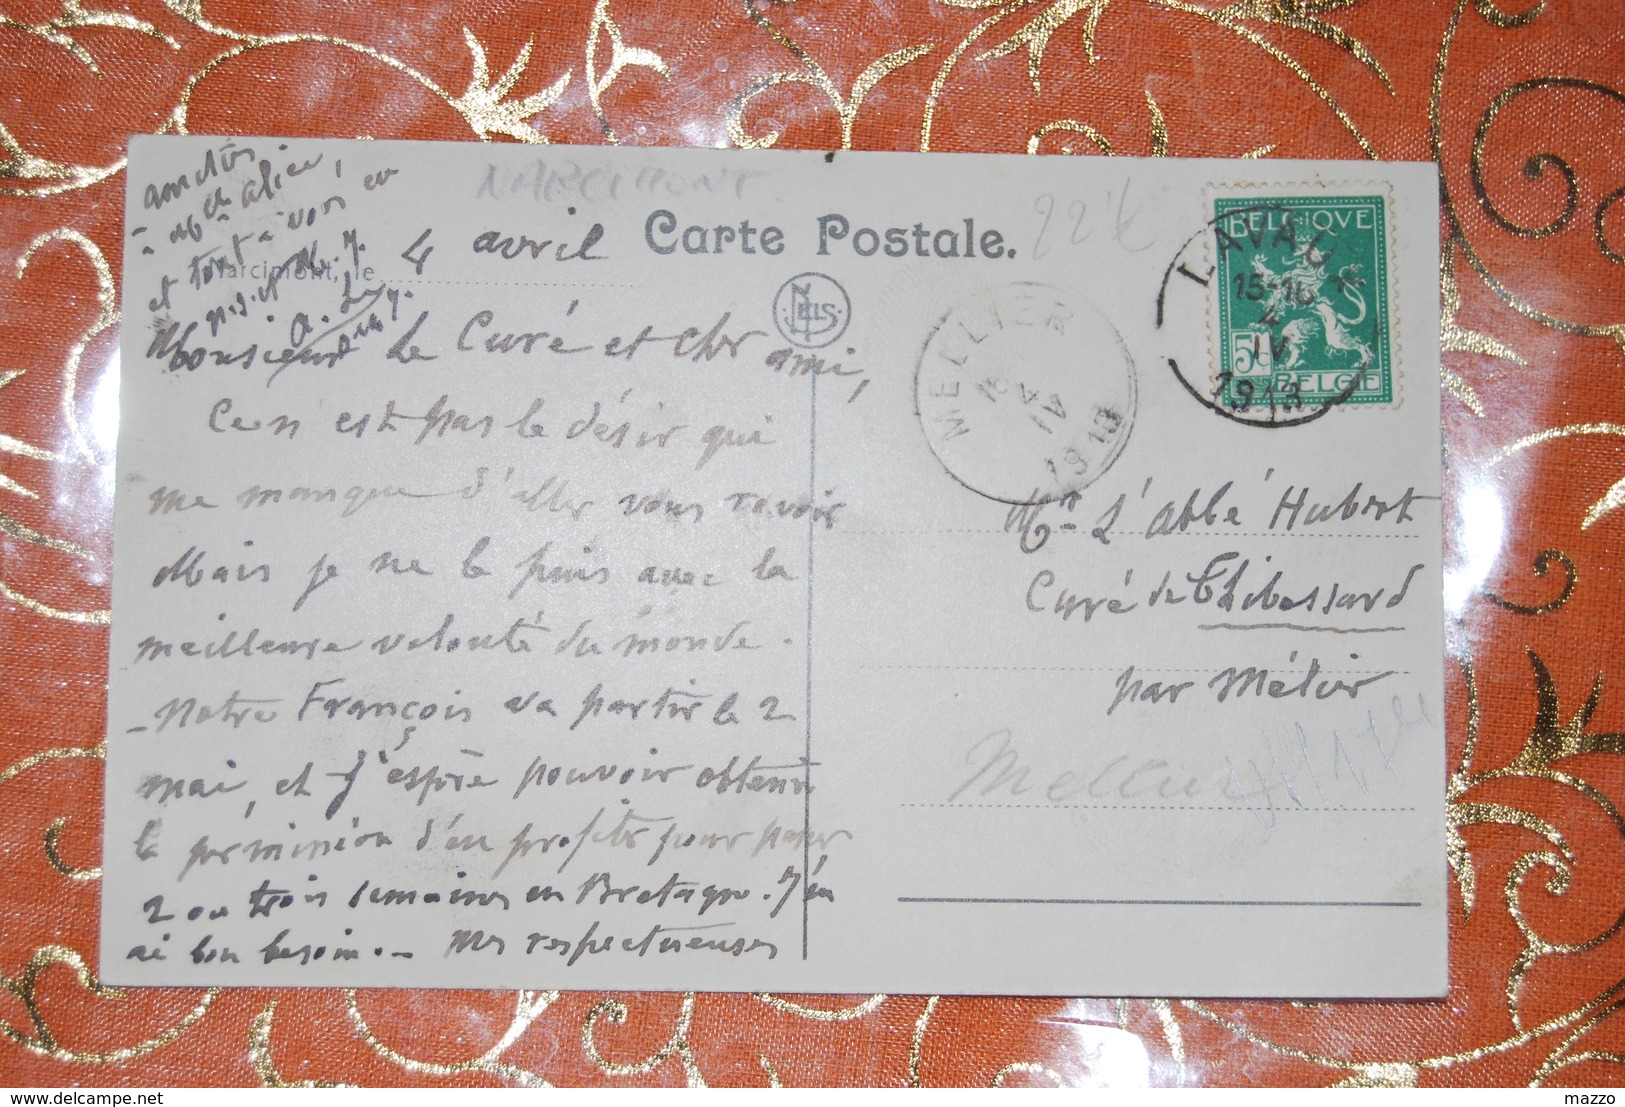 NARCIMONT
22
Carte Postale.
Narcimont, le 4 avril
NELS
Monsieur le Curé et cher ami,
Ce n'est pas le désir qui
me manque d'aller vous revoir
Mais je ne le puis avec la
meilleure volonté du monde.
- Notre François va partir le 2
mai, et j'espère pouvoir obtenir
la permission d'en profiter pour passer
2 ou trois semaines en Bretagne. J'en
ai bon besoin. - Mes respectueuses
amitiés
et tout à vous en
BELGIQUE
5c
BELGIE
LAVAUX
15-16
4
IV
1913
MELLIER
16
4
IV
1913
Mr L'abbé Hubert
Curé de Thibessard
par Mélier
Mellier
delcampe.net
mazzo